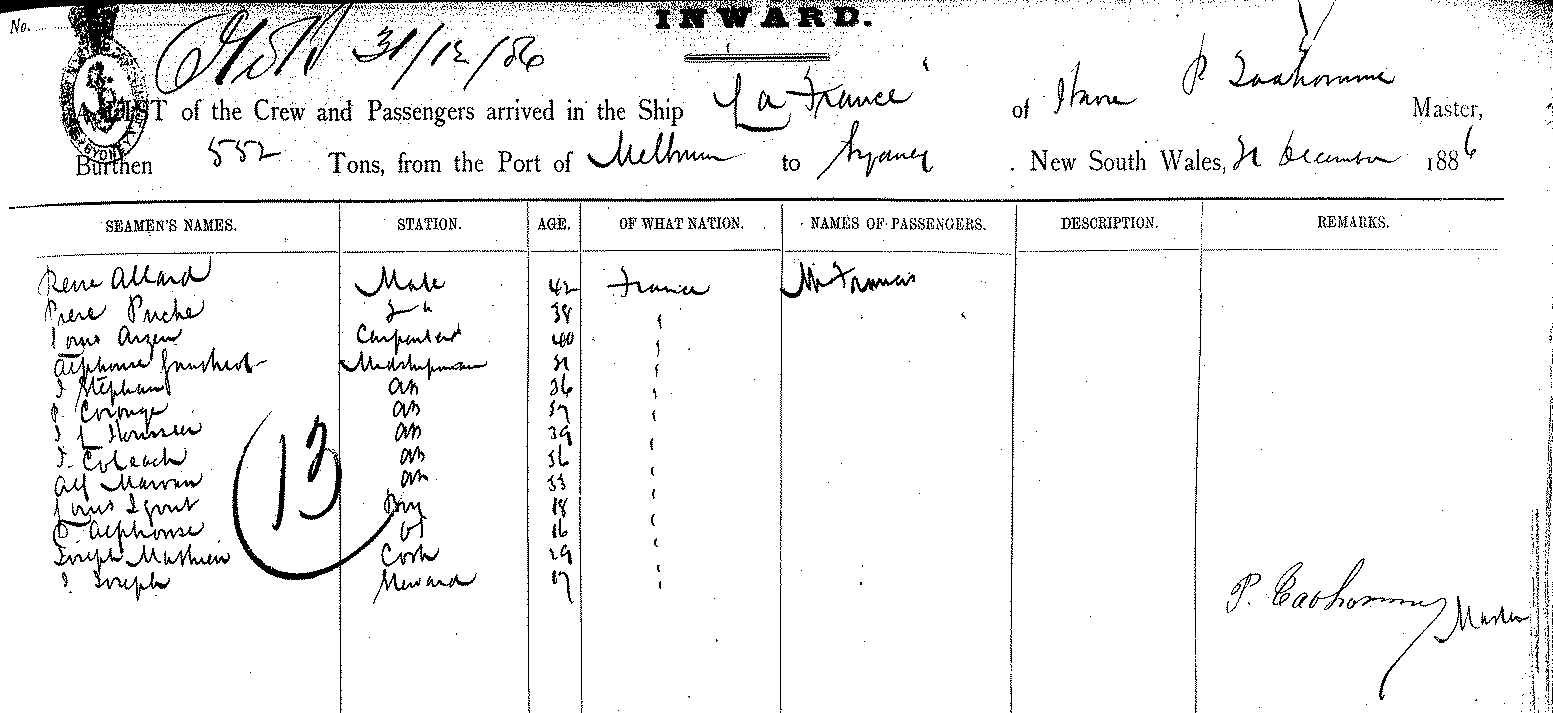 No.
INWARD.
31/12/86
A LIST of the Crew and Passengers arrived in the Ship La France of Havre P Master,
Burthen 552 Tons, from the Port of Melbourne to Sydney . New South Wales, 31 December 1886
SEAMEN'S NAMES. STATION. AGE. OF WHAT NATION. NAMES OF PASSENGERS. DESCRIPTION. REMARKS.
Rene Allard Mate 42 France Mr Francis
Piere Puche 2 " 38 "
Louis Carpenter 40 "
Alphonse Midshipman "
J Stephan AB 36 "
P. AB 37 "
AB 39 "
J. AB 36 "
Alf AB 33 "
Louis Boy 18 "
O. Alphonse OS 16 "
Joseph Mathieu Cook 29 "
J. Joseph Steward 17 "
13
P. Master
SYDNEY